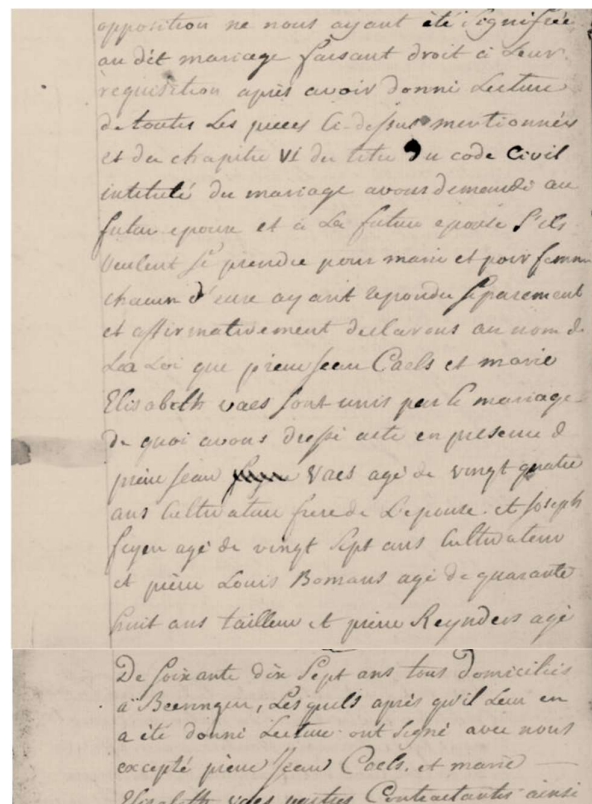 opposition ne nous ayant été signifiée
au dit mariage faisant droit à leur
requisition après avoir donni Lecture
de toutes Les pieces ci-dessus mentionnées
et du chapitre VI du titre du code Civil
intitulé du mariage avons demandé au
futur epoux et à La future epouse s'ils
veulent se prendre pour marie et pour femme
chacun d'eux ayant repondu separement
et affirmativement declarons au nom de
La Loi que pierre jean Caels et marie
Elisabeth vaes sont unis par le mariage
de quoi avons dressé acte en presence d
pierre jean Vaes agé de vingt quatre
ans Cultivateur frere de L'epouse. et joseph
feyen agé de vingt sept ans Cultivateur
et pierre Louis Bomans agé de quarante
huit ans tailleur et pierre Reynders agé
De soixante dix Sept ans tous domiciliés
à Beeringen, Lesquels après qu'il Leur en
a été donni Lecture ont signé avec nous
excepté pierre jean Caels. et marie
Elisabeth vaes parties Contractantes ainsi